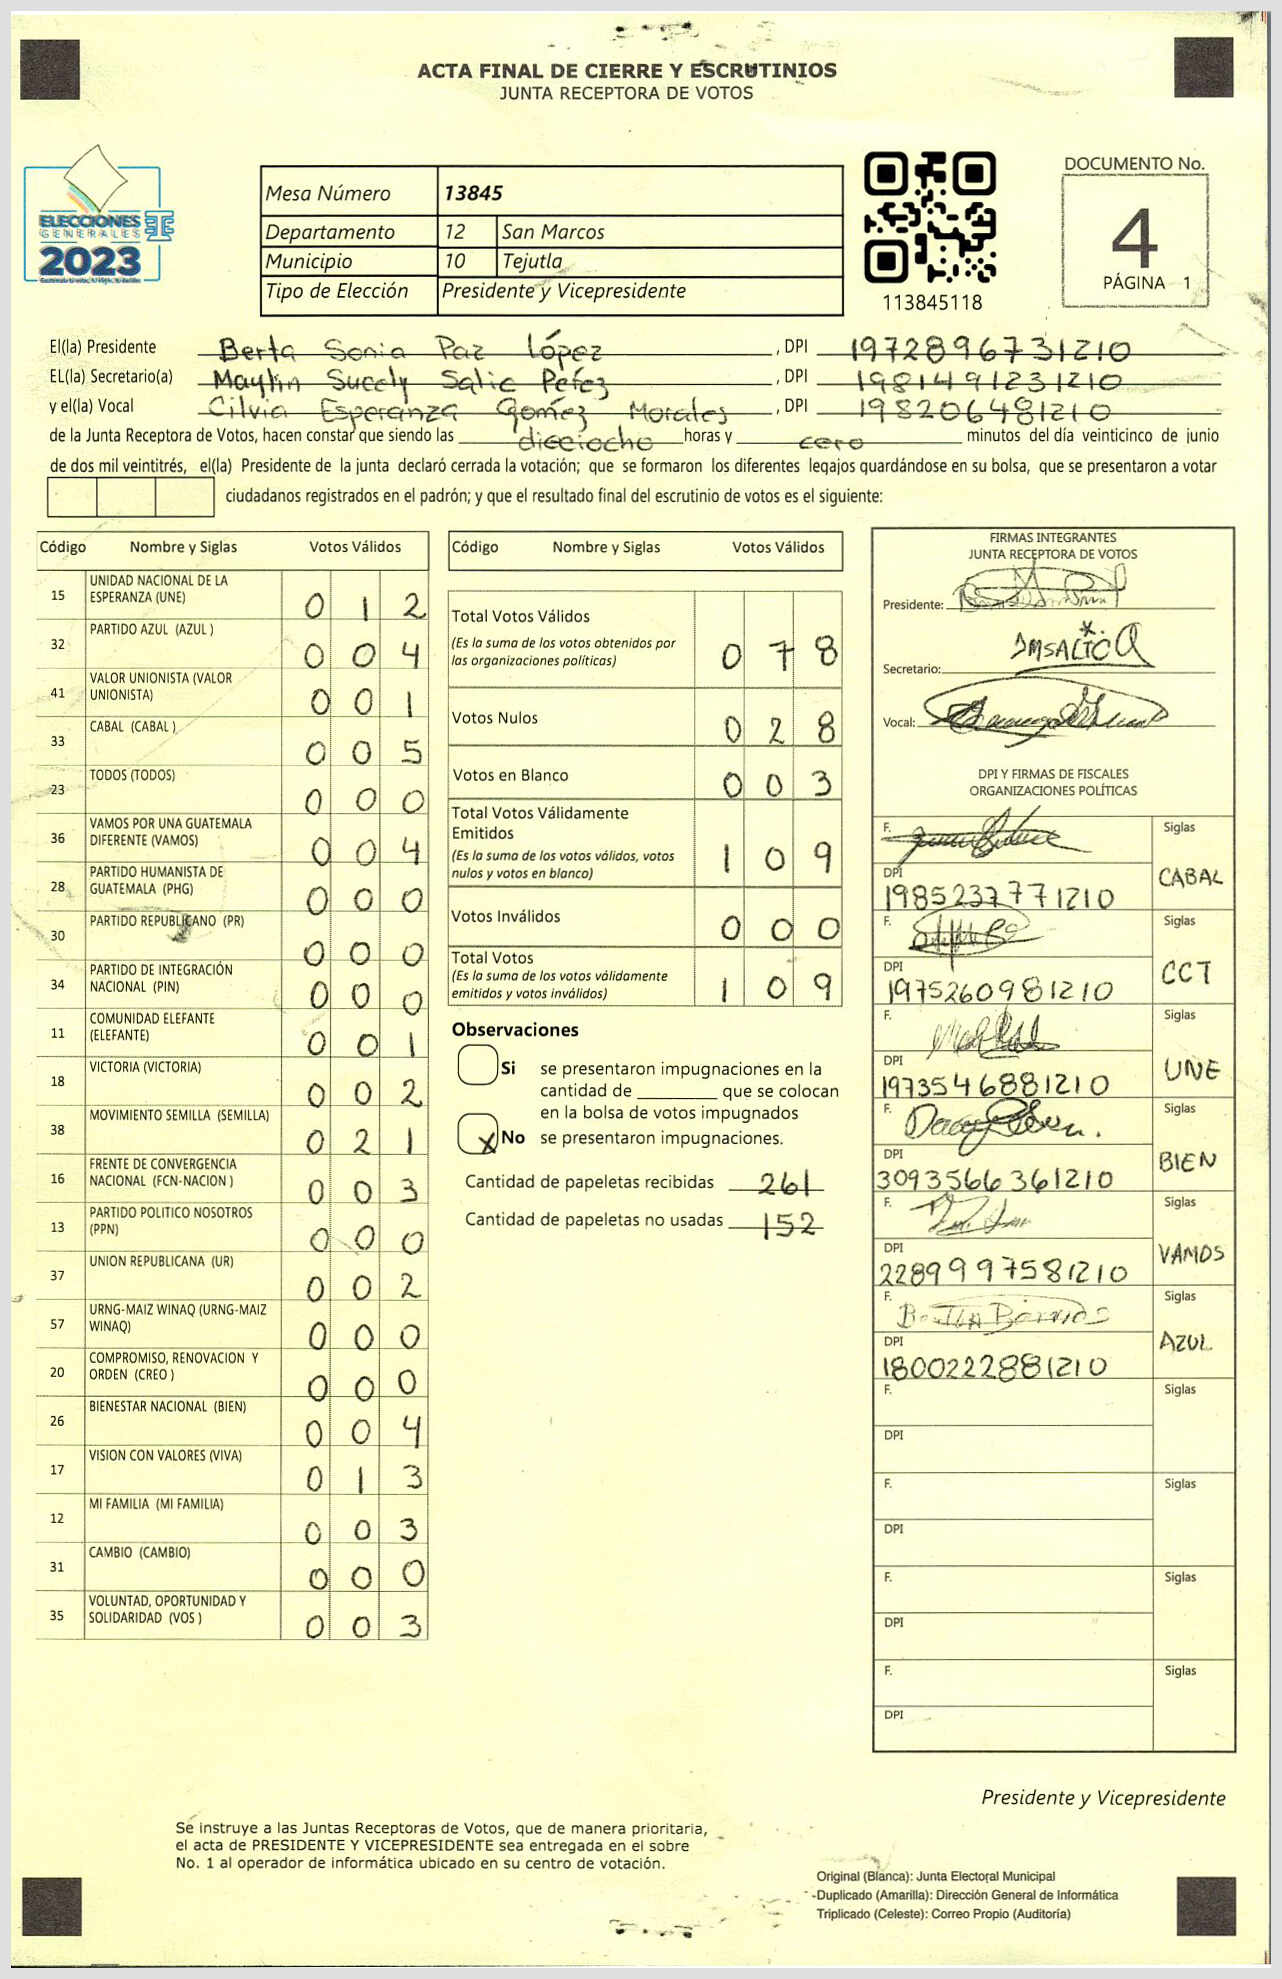 ACTA FINAL DE CIERRE Y ESCRUTINIOS
JUNTA RECEPTORA DE VOTOS
ELECCIONES
GENERALES
2023
Mesa Número 13845
Departamento 12 San Marcos
Municipio 10 Tejutla
Tipo de Elección Presidente y Vicepresidente
113845118
DOCUMENTO No.
4
PÁGINA 1
El(la) Presidente Berta Sonia Paz López , DPI 1972896731210
EL(la) Secretario(a) Maylin Sucely Salic Peréz , DPI 1981491231210
y el(la) Vocal Cilvia Esperanza Goméz Morales , DPI 198206481210
de la Junta Receptora de Votos, hacen constar que siendo las dieciocho horas y cero minutos del día veinticinco de junio
de dos mil veintitrés, el(la) Presidente de la junta declaró cerrada la votación; que se formaron los diferentes legajos guardándose en su bolsa, que se presentaron a votar
ciudadanos registrados en el padrón; y que el resultado final del escrutinio de votos es el siguiente:
Código Nombre y Siglas Votos Válidos
15 UNIDAD NACIONAL DE LA ESPERANZA (UNE) 0 1 2
32 PARTIDO AZUL (AZUL ) 0 0 4
41 VALOR UNIONISTA (VALOR UNIONISTA) 0 0 1
33 CABAL (CABAL ) 0 0 5
23 TODOS (TODOS) 0 0 0
36 VAMOS POR UNA GUATEMALA DIFERENTE (VAMOS) 0 0 4
28 PARTIDO HUMANISTA DE GUATEMALA (PHG) 0 0 0
30 PARTIDO REPUBLICANO (PR) 0 0 0
34 PARTIDO DE INTEGRACIÓN NACIONAL (PIN) 0 0 0
11 COMUNIDAD ELEFANTE (ELEFANTE) 0 0 1
18 VICTORIA (VICTORIA) 0 0 2
38 MOVIMIENTO SEMILLA (SEMILLA) 0 2 1
16 FRENTE DE CONVERGENCIA NACIONAL (FCN-NACION ) 0 0 3
13 PARTIDO POLITICO NOSOTROS (PPN) 0 0 0
37 UNION REPUBLICANA (UR) 0 0 2
57 URNG-MAIZ WINAQ (URNG-MAIZ WINAQ) 0 0 0
20 COMPROMISO, RENOVACION Y ORDEN (CREO ) 0 0 0
26 BIENESTAR NACIONAL (BIEN) 0 0 4
17 VISION CON VALORES (VIVA) 0 1 3
12 MI FAMILIA (MI FAMILIA) 0 0 3
31 CAMBIO (CAMBIO) 0 0 0
35 VOLUNTAD, OPORTUNIDAD Y SOLIDARIDAD (VOS ) 0 0 3
Código Nombre y Siglas Votos Válidos
Total Votos Válidos
(Es la suma de los votos obtenidos por
las organizaciones políticas) 0 7 8
Votos Nulos 0 2 8
Votos en Blanco 0 0 3
Total Votos Válidamente
Emitidos
(Es la suma de los votos válidos, votos
nulos y votos en blanco) 1 0 9
Votos Inválidos 0 0 0
Total Votos
(Es la suma de los votos válidamente
emitidos y votos inválidos) 1 0 9
Observaciones
Si se presentaron impugnaciones en la
cantidad de ________ que se colocan
en la bolsa de votos impugnados
X No se presentaron impugnaciones.
Cantidad de papeletas recibidas 261
Cantidad de papeletas no usadas 152
FIRMAS INTEGRANTES
JUNTA RECEPTORA DE VOTOS
Presidente:
Secretario:
Vocal:
DPI Y FIRMAS DE FISCALES
ORGANIZACIONES POLÍTICAS
F. Siglas
DPI 1985237771210 CABAL
F. Siglas
DPI 1975260981210 CCT
F. Siglas
DPI 1973546881210 UNE
F. Siglas
DPI 3093566361210 BIEN
F. Siglas
DPI 2289997581210 VAMOS
F. Siglas
DPI 1800222881210 AZUL
F. Siglas
DPI
F. Siglas
DPI
F. Siglas
DPI
F. Siglas
DPI
Presidente y Vicepresidente
Se instruye a las Juntas Receptoras de Votos, que de manera prioritaria,
el acta de PRESIDENTE Y VICEPRESIDENTE sea entregada en el sobre
No. 1 al operador de informática ubicado en su centro de votación.
Original (Blanca): Junta Electoral Municipal
Duplicado (Amarilla): Dirección General de Informática
Triplicado (Celeste): Correo Propio (Auditoría)